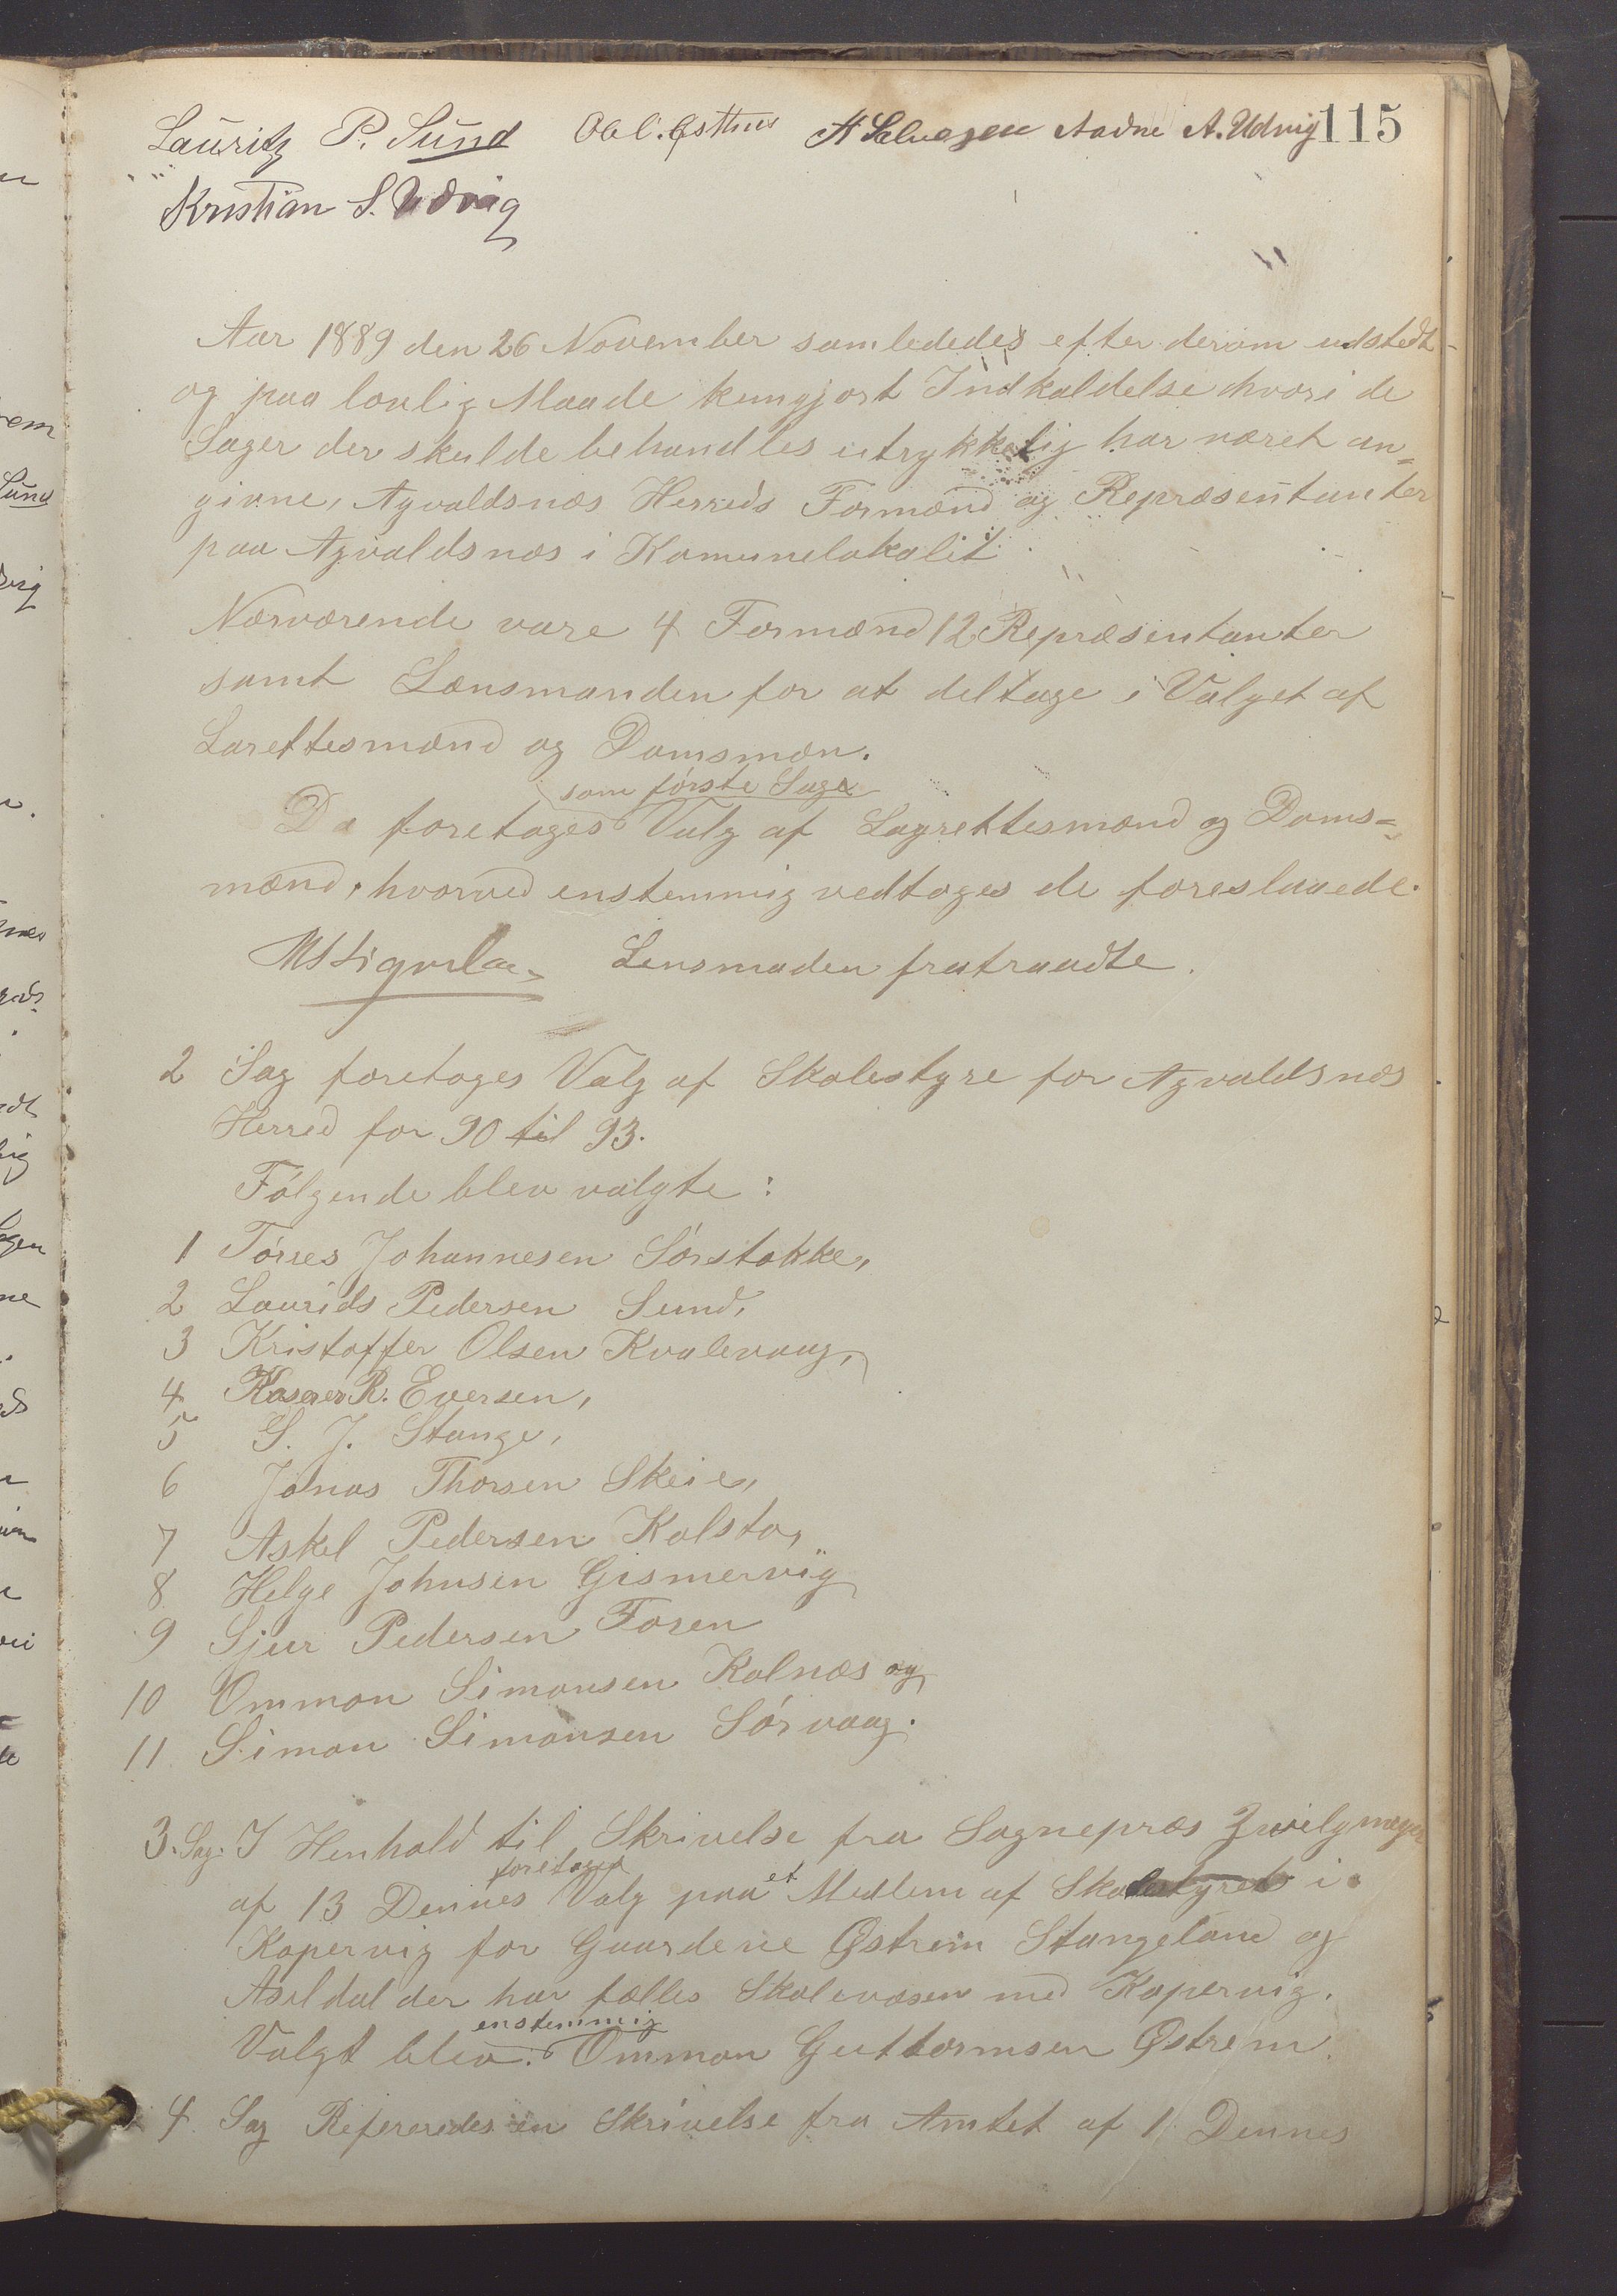 115
Lauritz P. Sund Aadne A. Udvig
Kristian S. Udvig
Aar 1889 den 26 November samlededes efter derom udstedt
og paa lovlig Maade kungjort Indkaldelse hvori de
Sager der skulde behandles utrykkelig har været an=
givne, Agvaldsnæs Herreds Formænd og Repræsentanter
paa Agvaldsnæs i Komunelokalet.
Nærværende vare 4 Formænd 12 Repræsentanter
samt Lænsmanden for at deltage i Valget af
Larettesmænd og Domsmæn.
som første Sag
Da foretoges Valg af Lagrettesmænd og Doms=
mænd, hvorved enstemmig vedtoges de foreslaaede.
Lensmaden fratraadte.
2 Sag foretoges Valg af Skolestyre for Agvaldsnæs
Herred for 90 til 93.
Følgende blev valgte:
1 Tørres Johannesen Sørstokke,
2 Laurids Pedersen Sund,
3 Kristoffer Olsen Kvalevaag,
4 R. Eversen,
5 S. J. Stange,
6 Jonas Thorsen Skeie,
7 Askel Pedersen Kolstø,
8 Helge Johnsen Gismervig
9 Sjur Pedersen Fosen
10 Ommon Simonsen Kolnæs og
11 Simon Simonsen Sørvaag.
3. Sag. I Henhold til Skrivelse fra Sognepræs Zwilgmeyer
foretoges et
af 13 Dennes Valg paa Medlem af Skolestyret i
Kopervig for Gaardene Østrem Stangeland og
Aseldal der har fælles Skolevæsen med Kopervig.
enstemmig
Valgt blev. Ommon Guttormsen Østrem.
4 Sag Refereredes en Skrivelse fra Amtet af 1 Dennes